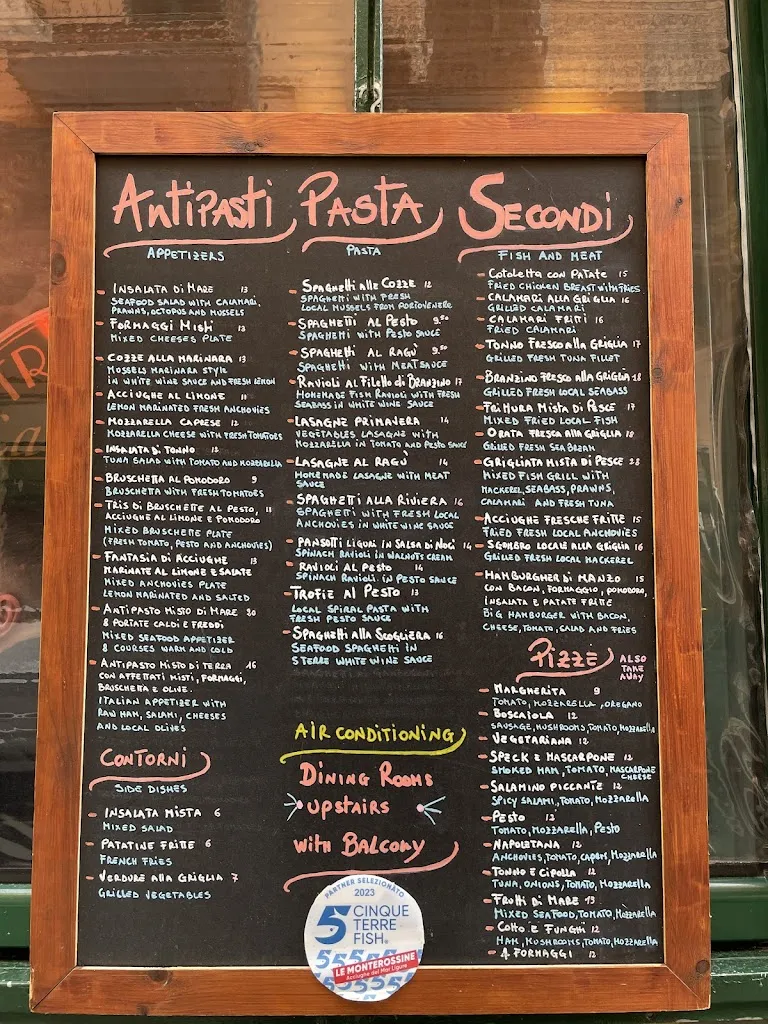 Antipasti
APPETIZERS
INSALATA Di MARE 13
SEAFOOD SALAD WITH CALAMARI,
PRAWNS, OCTOPUS AND MUSSELS
FORMAGGI Misti 13
MIXED CHEESES PLATE
COZZE ALLA MARINARA 13
MUSSELS MARINARA STYLE
IN WHITE WINE SAUCE AND FRESH LEMON
ACCIUGHE AL LIMONE 11
LEMON MARINATED FRESH ANCHOVIES
MOZZARELLA CAPRESE 12
MOZZARELLA CHEESE WITH FRESH TOMATOES
INSALATA Di TONNO 12
TUNA SALAD WITH TOMATO AND MOZZARELLA
BRUSCHETTA AL POMODORO 9
BRUSCHETTA WITH FRESH TOMATOES
TRIS Di BRUSCHETTE AL PESTO, 11
ACCIUGHE AL LIMONE E POMODORO
MIXED BRUSCHETTE PLATE
(FRESH TOMATO, PESTO AND ANCHOVIES)
FANTASIA Di ACCIUGHE 13
MARINATE AL LIMONE E SALATE
MIXED ANCHOVIES PLATE
LEMON MARINATED AND SALTED
ANTIPASTO MISTO Di MARE 20
8 PORTATE CALDI E FREDDI
MIXED SEAFOOD APPETIZER
8 COURSES WARM AND COLD
ANTIPASTO MISTO Di TERRA 16
CON AFFETTATI MISTI, FORMAGGI,
BRUSCHETTA E OLIVE.
ITALIAN APPETIZER WITH
RAW HAM, SALAMI, CHEESES
AND LOCAL OLIVES
CONTORNI
SIDE DISHES
INSALATA MISTA 6
MIXED SALAD
PATATINE FRITTE 6
FRENCH FRIES
VERDURE ALLA GRIGLIA 7
GRILLED VEGETABLES
PASTA
PASTA
SPAGHETTI alle COZZE 12
SPAGHETTI WITH FRESH
LOCAL MUSSELS FROM PORTOVENERE
SPAGHETTI AL PESTO 9.50
SPAGHETTI WITH PESTO SAUCE
SPAGHETTI AL RAGÙ 9.50
SPAGHETTI WITH MEAT SAUCE
RAVIOLI AL FILETTO Di BRANZINO 17
HOMEMADE FISH RAVIOLI WITH FRESH
SEABASS IN WHITE WINE SAUCE
LASAGNE PRIMAVERA 14
VEGETABLES LASAGNE WITH
MOZZARELLA IN TOMATO AND PESTO SAUCE
LASAGNE AL RAGÙ 14
HOMEMADE LASAGNE WITH MEAT
SAUCE
SPAGHETTI ALLA RIVIERA 14
SPAGHETTI WITH FRESH LOCAL
ANCHOVIES IN WHITE WINE SAUCE
PANSOTTI LIGURI IN SALSA Di NOCI 14
SPINACH RAVIOLI IN WALNUTS CREAM
RAVIOLI AL PESTO 14
SPINACH RAVIOLI IN PESTO SAUCE
TROFIE AL PESTO 13
LOCAL SPIRAL PASTA WITH
FRESH PESTO SAUCE
SPAGHETTI ALLA SCOGLIERA 16
SEAFOOD SPAGHETTI IN
5 TERRE WHITE WINE SAUCE
AIR CONDITIONING
DINING ROOMS
UPSTAIRS
WITH BALCONY
PARTNER SELEZIONATO
2023
5 CINQUE
TERRE
FISH
LE MONTEROSSINE
Acciughe del Mar Ligure
SECONDI
FISH AND MEAT
COTOLETTA CON PATATE 15
FRIED CHICKEN BREAST WITH FRIES
CALAMARI ALLA GRIGLIA 16
GRILLED CALAMARI
CALAMARI FRITTI 16
FRIED CALAMARI
TONNO FRESCO ALLA GRIGLIA 17
GRILLED FRESH TUNA FILLET
BRANZINO FRESCO ALLA GRIGLIA 18
GRILLED FRESH LOCAL SEABASS
FRITTURA MISTA Di PESCE 17
MIXED FRIED LOCAL FISH
ORATA FRESCA ALLA GRIGLIA 18
GRILLED FRESH SEA BREAM
GRIGLIATA MISTA Di PESCE 28
MIXED FISH GRILL WITH
MACKEREL, SEABASS, PRAWNS,
CALAMARI AND FRESH TUNA
ACCIUGHE FRESCHE FRITTE 15
FRIED FRESH LOCAL ANCHOVIES
SGOMBRO LOCALE ALLA GRIGLIA 16
GRILLED FRESH LOCAL MACKEREL
HAMBURGHER DI MANZO 15
CON BACON, FORMAGGIO, POMODORO,
INSALATA E PATATE FRITTE
BIG HAMBURGER WITH BACON,
CHEESE, TOMATO, SALAD AND FRIES
PIZZE
ALSO
TAKE
AWAY
MARGHERITA 9
TOMATO, MOZZARELLA, OREGANO
BOSCAIOLA 12
SAUSAGE, MUSHROOMS, TOMATO, MOZZARELLA
VEGETARIANA 12
SPECK E MASCARPONE 12
SMOKED HAM, TOMATO, MASCARPONE
CHEESE
SALAMINO PICCANTE 12
SPICY SALAMI, TOMATO, MOZZARELLA
PESTO 12
TOMATO, MOZZARELLA, PESTO
NAPOLETANA 12
ANCHOVIES, TOMATO, CAPERS, MOZZARELLA
TONNO E CIPOLLA 12
TUNA, ONIONS, TOMATO, MOZZARELLA
FRUTTI Di MARE 13
MIXED SEAFOOD, TOMATO, MOZZARELLA
COTTO E FUNGHI 12
HAM, MUSHROOMS, TOMATO, MOZZARELLA
4 FORMAGGI 12